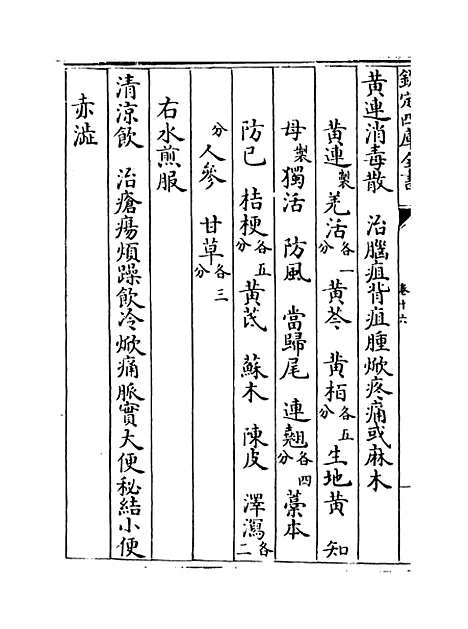 欽定四庫全書
卷十六
黃連消毒散　治腦疽背疽腫焮疼痛或麻木
黃連製　羌活各一分　黃芩　黃栢各五分　生地黃　知
母製　獨活　防風　當歸尾　連翹各四分　藁本
防已　桔梗各五分　黃芪　蘇木　陳皮　澤瀉各二
分　人參　甘草各三分
右水煎服
清涼飲　治瘡瘍煩躁飲冷焮痛脈實大便秘結小便
赤澁